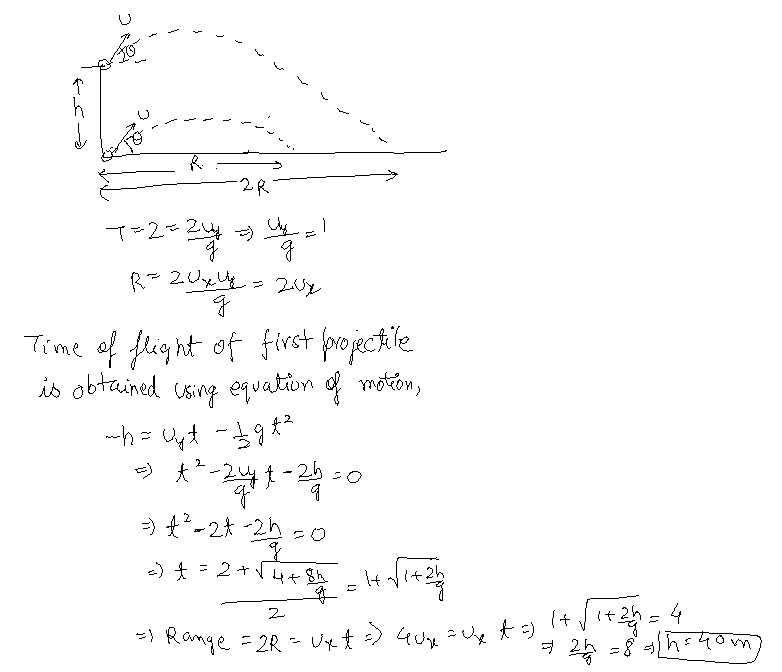 U
θ
h
U
θ
R
2R
T = 2 = 2uy/g ⇒ uy/g = 1
R = 2UxUy/g = 2Ux
Time of flight of first projectile
is obtained using equation of motion,
-h = Uyt - 1/2 gt²
⇒ t² - 2uy/g t - 2h/g = 0
⇒ t² - 2t - 2h/g = 0
⇒ t = (2 + √(4 + 8h/g))/2 = 1 + √(1 + 2h/g)
⇒ Range = 2R = Uxt ⇒ 4Ux = Ux t ⇒ 1 + √(1 + 2h/g) = 4
⇒ 2h/g = 8 ⇒ h = 40m